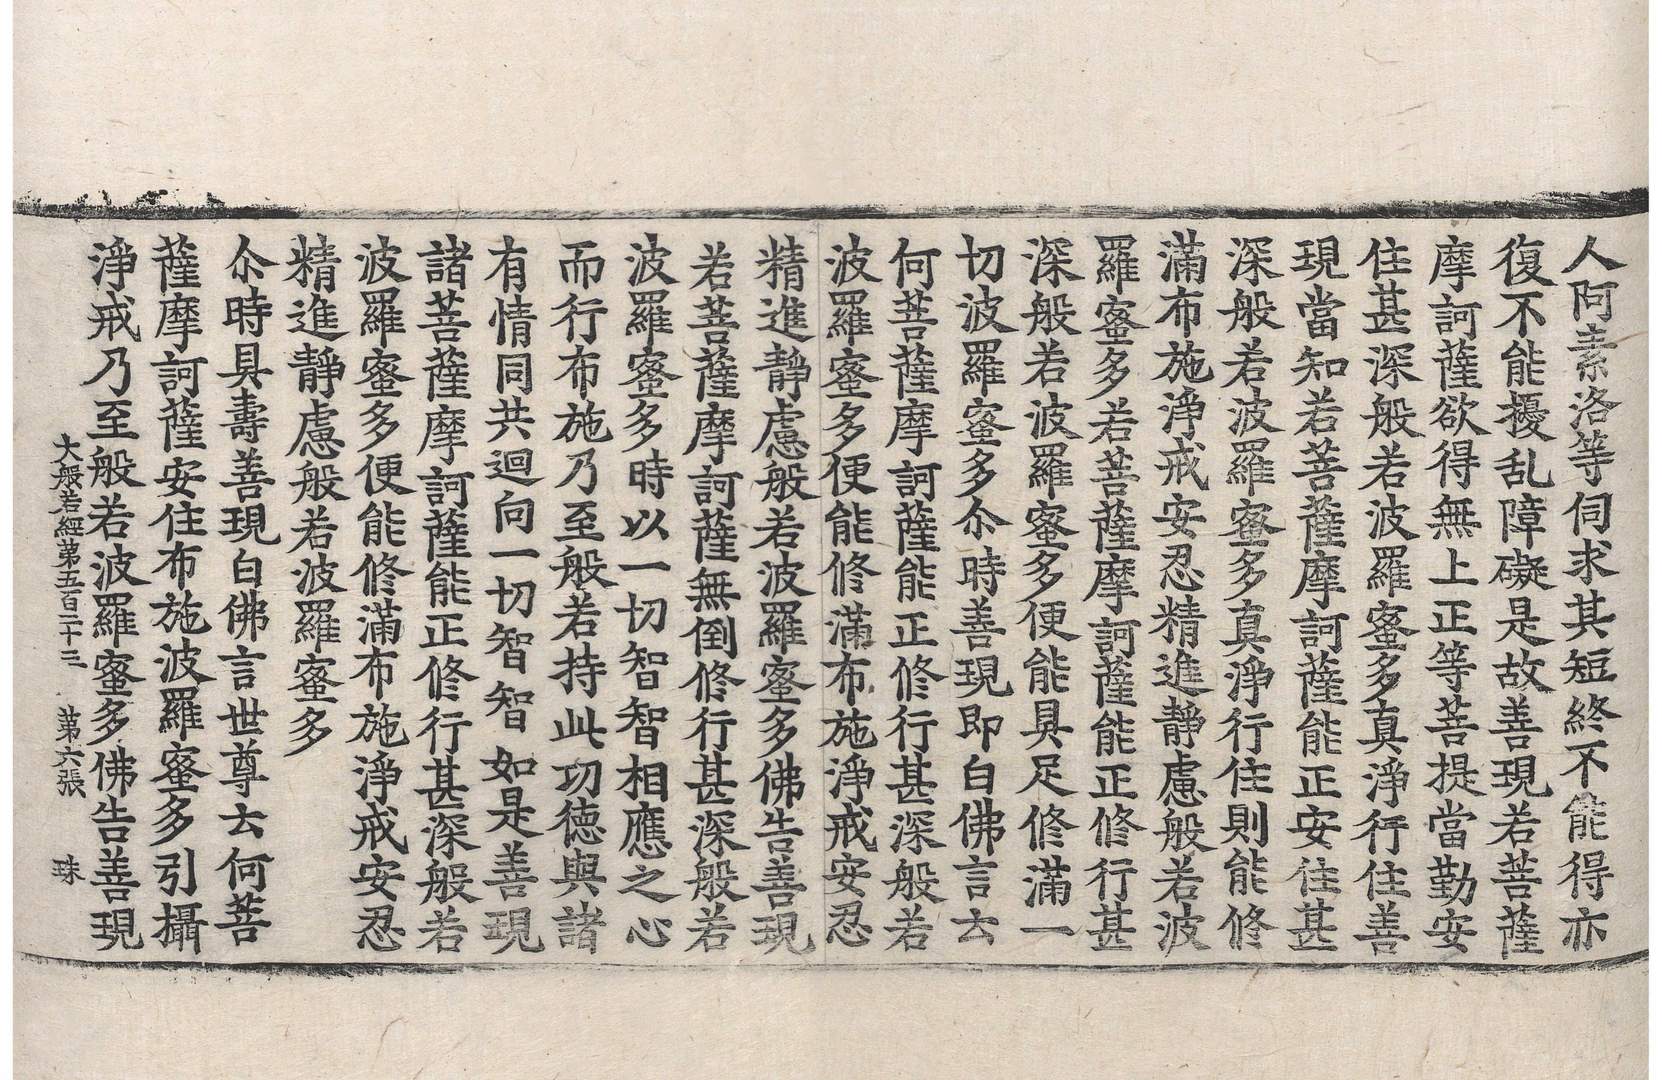 人阿素洛等伺求其短終不能得亦
復不能擾乱障礙是故善現若菩薩
摩訶薩欲得無上正等菩提當勤安
住甚深般若波羅蜜多真淨行住善
現當知若菩薩摩訶薩能正安住甚
深般若波羅蜜多真淨行住則能修
滿布施淨戒安忍精進靜慮般若波
羅蜜多若菩薩摩訶薩能正修行甚
深般若波羅蜜多便能具足修滿一
切波羅蜜多尒時善現即白佛言云
何菩薩摩訶薩能正修行甚深般若
波羅蜜多便能修滿布施淨戒安忍
精進靜慮般若波羅蜜多佛告善現
若菩薩摩訶薩無倒修行甚深般若
波羅蜜多時以一切智智相應之心
而行布施乃至般若持此功德與諸
有情同共迴向一切智智如是善現
諸菩薩摩訶薩能正修行甚深般若
波羅蜜多便能修滿布施淨戒安忍
精進靜慮般若波羅蜜多
尒時具壽善現白佛言世尊云何菩
薩摩訶薩安住布施波羅蜜多引攝
淨戒乃至般若波羅蜜多佛告善現
大般若經第五百二十三 第六張 珠